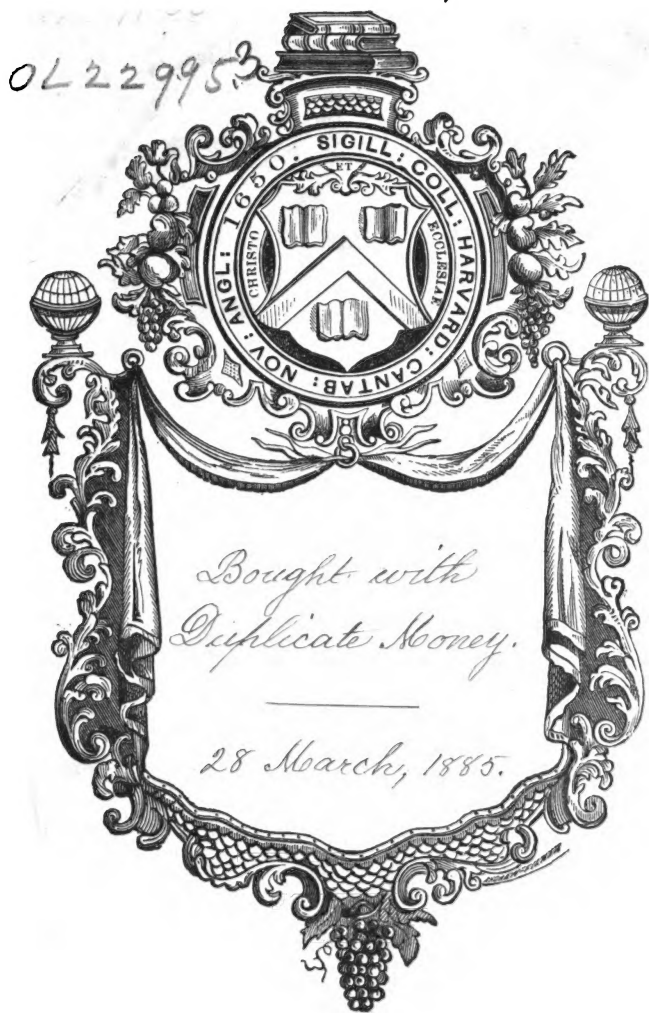 OL22995.3
SIGILL: COLL: HARVARD: CANTAB: NOV: ANGL: 1650.
ET
CHRISTO
ECCLESIAE
Bought with
Duplicate Money.
28 March, 1885.